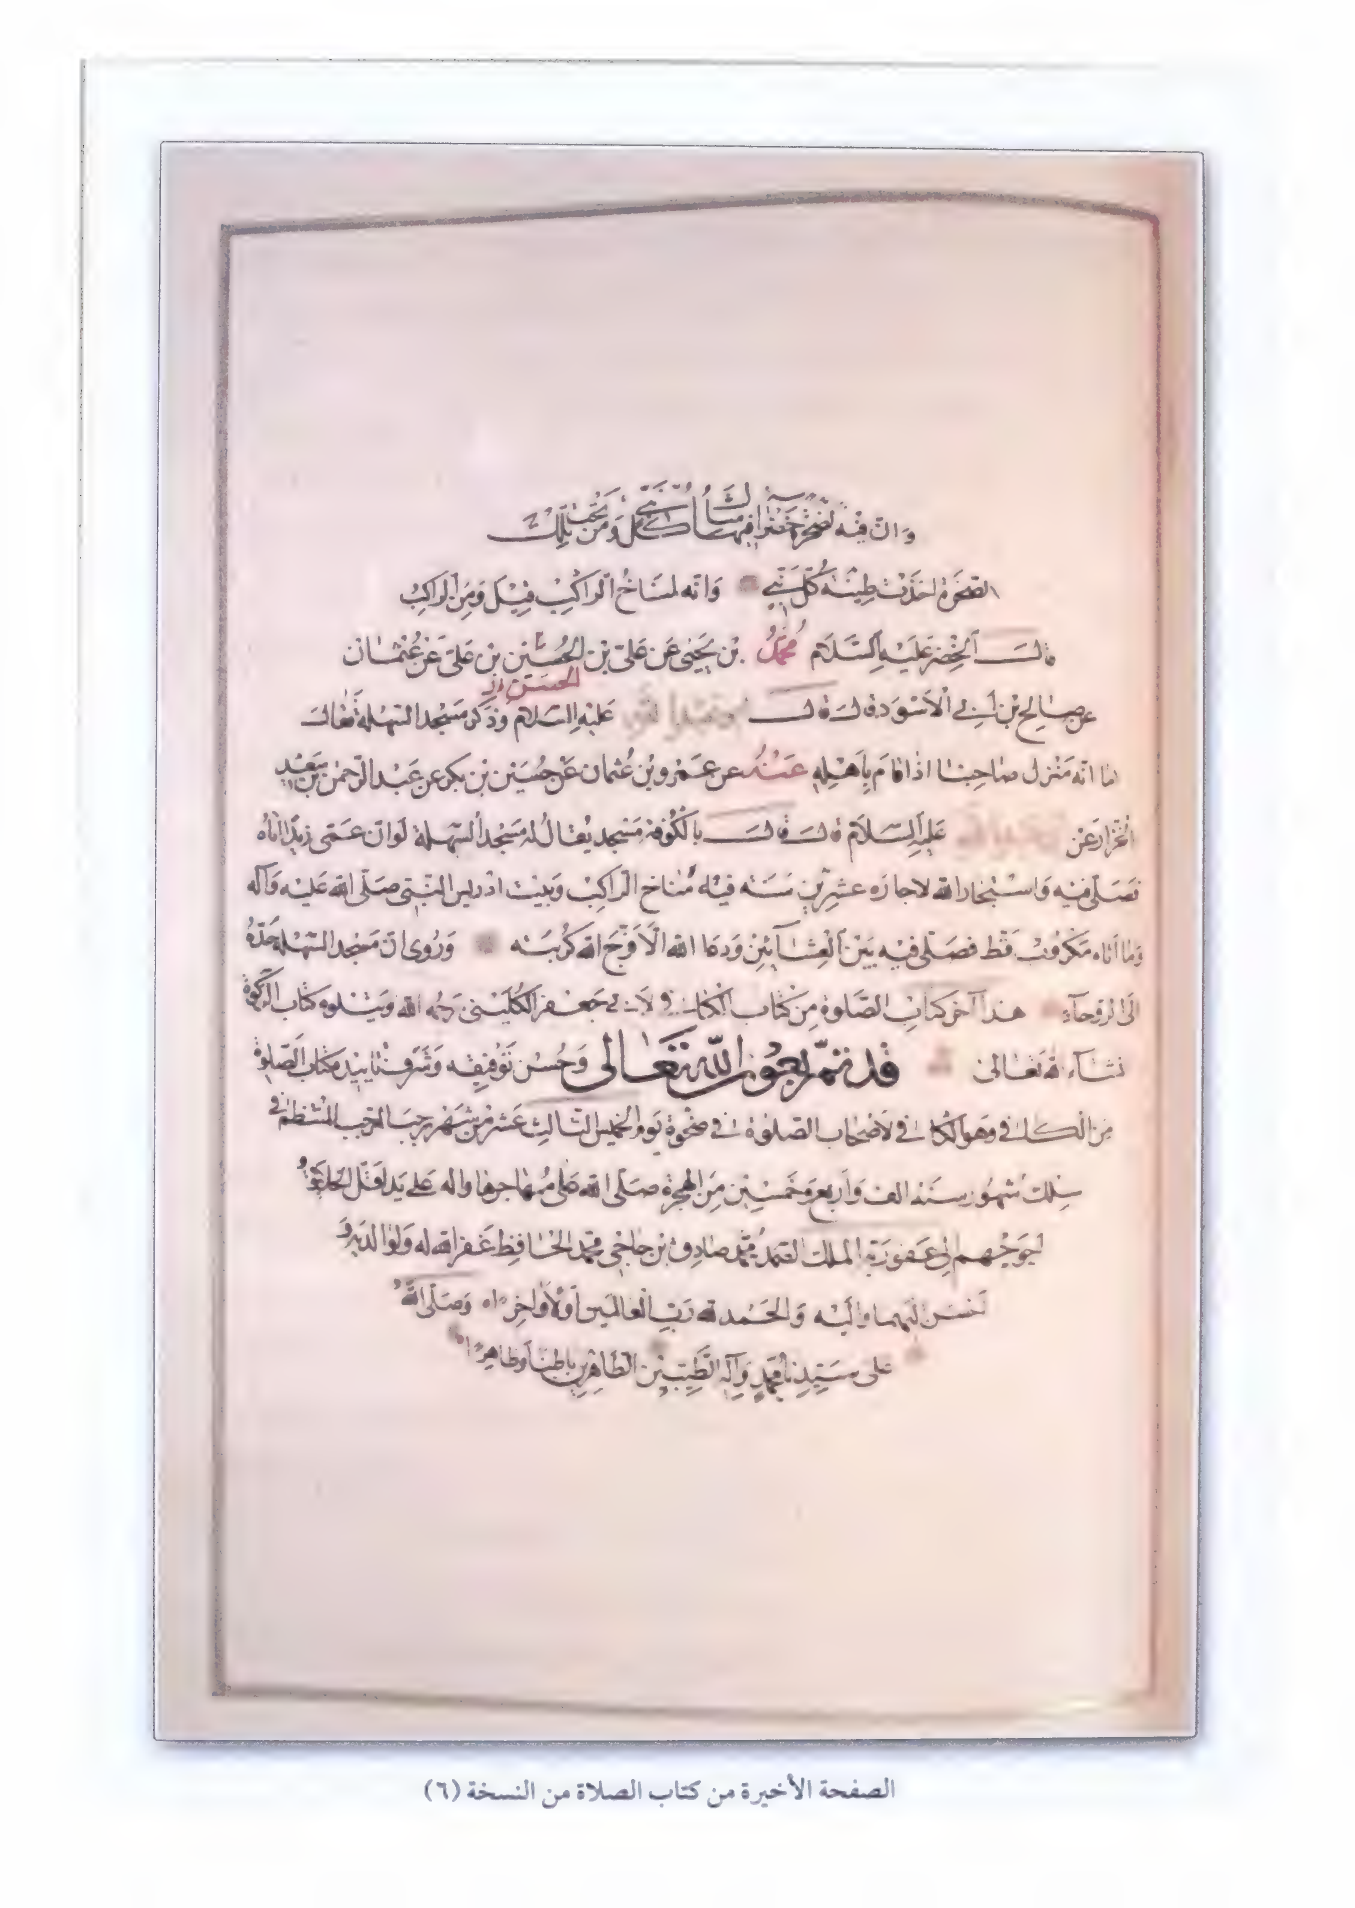 وان فيه لصخرة خضراء فيها مثال كل نبي ومن تحت تلك
الصخرة اخذت طينة كل نبي وانه لمناخ الراكب قيل ومن الراكب
قال الخضر عليه السلام محمد بن يحيى عن علي بن الحسين بن علي عن عثمان
الحسن
عن صالح بن ابي الاسود قال قال ابو عبد الله عليه السلام وذكر مسجد السهلة فقال
اما انه منزل صاحبنا اذا قام باهله عنه عن عمرو بن عثمان عن حسين بن بكر عن عبد الرحمن بن سعيد
الخزاز عن ابي عبد الله عليه السلام قال قال بالكوفة مسجد يقال له مسجد السهلة لو ان عمى زيدا اتاه
فصلى فيه واستجار الله لاجاره عشرين سنة فيه مناخ الراكب وبيت ادريس النبي صلى الله عليه وآله
وما اتاه مكروب قط فصلى فيه بين العشائين ودعا الله الا فرج الله كربته وروى ان مسجد السهلة حده
الى الروحاء هذا آخر كتاب الصلوة من كتاب الكافي لابي جعفر الكليني رحمه الله ويتلوه كتاب الزكوة
نشاء الله تعالى قد تم بعون الله تعالى وحسن توفيقه وشرف تاييد كتاب الصلوة
من الكافي وهو الكافي لاصحاب الصلوة في ضحوة يوم الخميس الثالث عشر من شهر رجب المرجب المنتظم في
سلك شهور سنة الف واربع وخمسين من الهجرة صلى الله على مهاجرها واله على يد اقل الخليقة و
احوجهم الى عفو ربه الملك الصمد محمد صادق بن حاجى محمد الحافظ غفر الله له ولوالديه و
احسن اليهما واليه والحمد لله رب العالمين اولا واخرا وصلى الله
على سيدنا محمد وآله الطيبين الطاهرين باطنا وظاهرا
الصفحة الأخيرة من كتاب الصلاة من النسخة (٦)